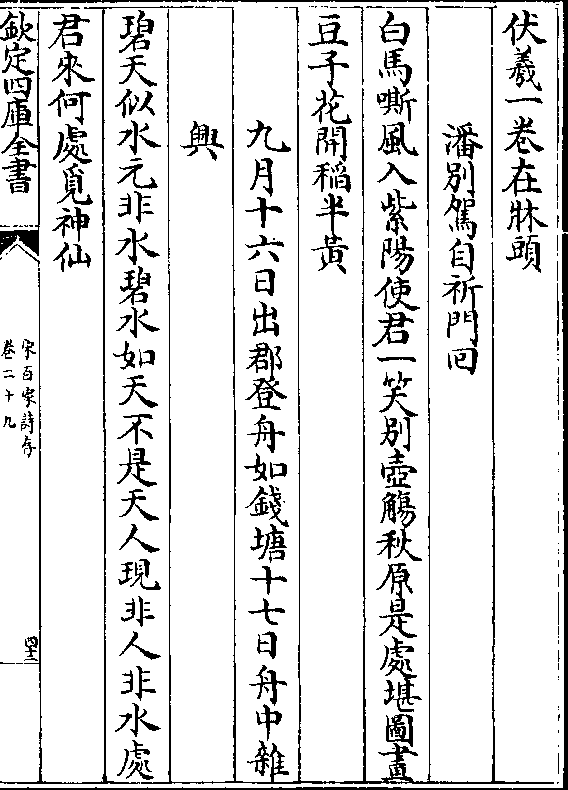 伏羲一卷在牀頭
潘別駕自祈門回
白馬嘶風入紫陽使君一笑別壺觴秋原是處堪圖畫
豆子花開稻半黃
九月十六日出郡登舟如錢塘十七日舟中雜
興
碧天似水元非水碧水如天不是天人現非人非水處
君來何處覓神仙
欽定四庫全書
宋百家詩存
卷二十九